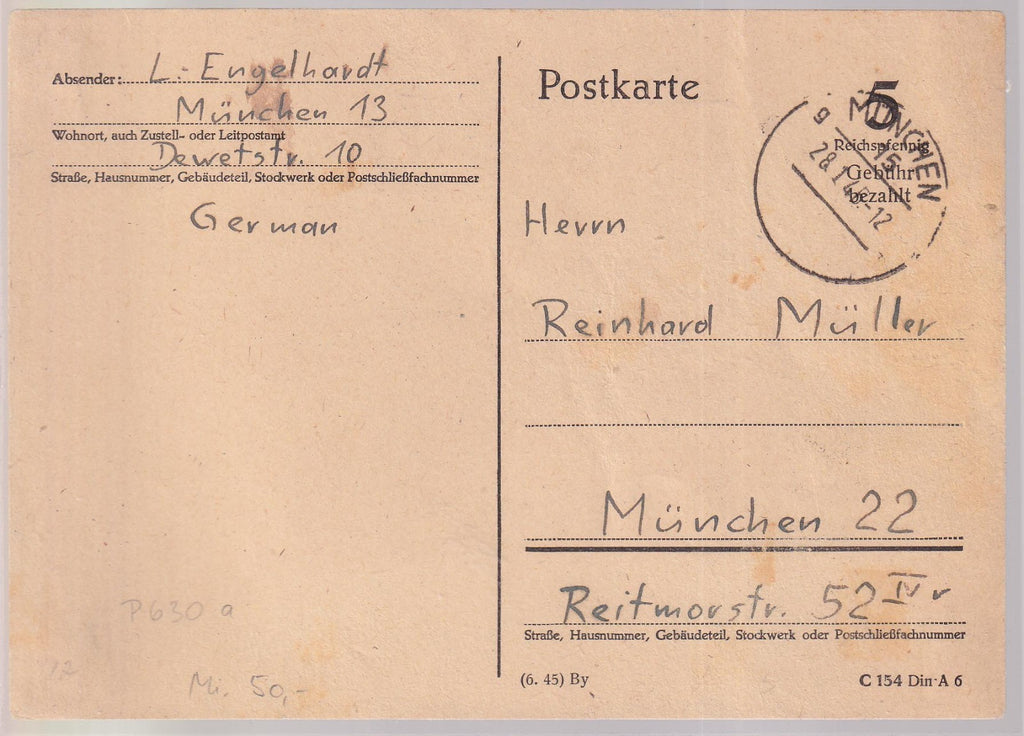 Absender: L. Engelhardt
München 13
Wohnort, auch Zustell- oder Leitpostamt
Dewetstr. 10
Straße, Hausnummer, Gebäudeteil, Stockwerk oder Postschließfachnummer
German
P630 a
Mi. 50,-
Postkarte
5
Reichspfennig
Gebühr
bezahlt
MÜNCHEN
15
g
Herrn
Reinhard Müller
München 22
Reitmorstr. 52 IV r
Straße, Hausnummer, Gebäudeteil, Stockwerk oder Postschließfachnummer
(6. 45) By
C 154 Din-A 6